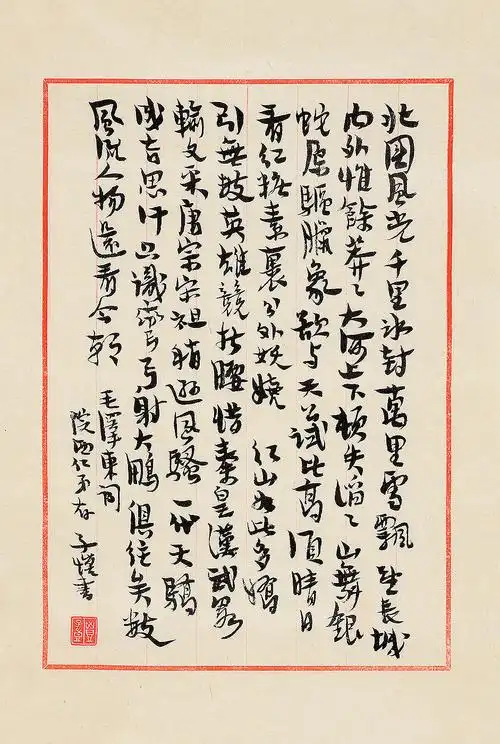 北國風光千里冰封萬里雪飄望長城
内外惟餘莽々大河上下頓失滔々山舞銀
蛇原驅臘象欲与天公試比高須晴日
看红妝素裹分外妖嬈 江山如此多嬌
引無数英雄競折腰惜秦皇漢武畧
輸文采唐宗宋祖稍遜風騷一代天驕
成吉思汗只識彎弓射大鵰俱往矣数
風流人物還看今朝
毛澤東詞
仁弟存 子愷書